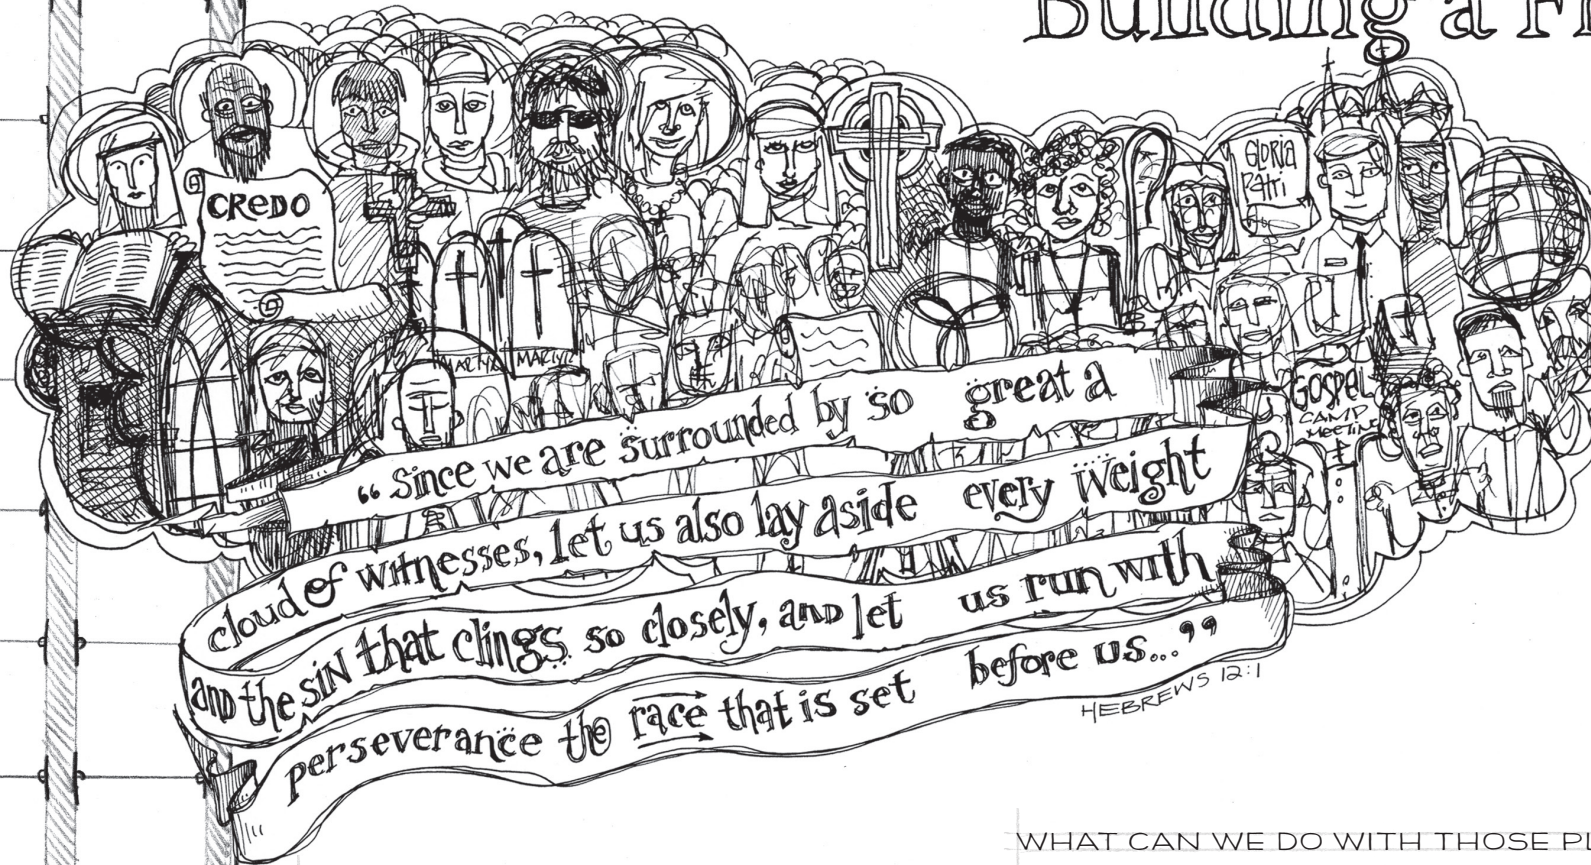 Building a F
CREDO
GLORIA
PATRI
MARTYR MARTYR
GOSPEL
CAMP
MEETING
“Since we are surrounded by so great a
cloud of witnesses, let us also lay aside every weight
and the sin that clings so closely, and let us run with
perseverance the race that is set before us...”
HEBREWS 12:1
WHAT CAN WE DO WITH THOSE PI